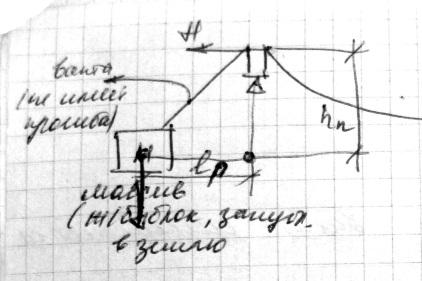 H
ванта
(не имеет
прогиба)
hп
lр
массив
(ж/б блок, заглуб.
в землю